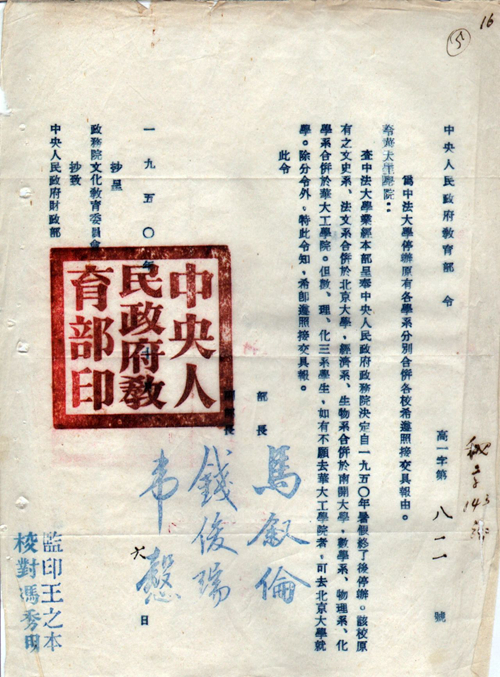 16
⑤
中央人民政府教育部 令
高一字第 八一一 號
為中法大學停辦原有各學系分別合併各校希遵照接交具報由。
令華大工學院:
查中法大學業經本部呈奉中央人民政府政務院決定自一九五〇年暑假終了後停辦。該校原
有之文史系、法文系合併於北京大學,經濟系、生物系合併於南開大學,數學系、物理系、化
學系合併於華大工學院。但數、理、化三系學生,如有不願去華大工學院者,可去北京大學就
學。除分令外,特此令知,希即遵照接交具報。
此令
部長 馬叙倫
副部長 錢俊瑞
韋愨
一九五〇年
日
抄呈
政務院文化教育委員會
抄致
中央人民政府財政部
中央人
民政府教
育部印
監印王之本
校對馮秀明